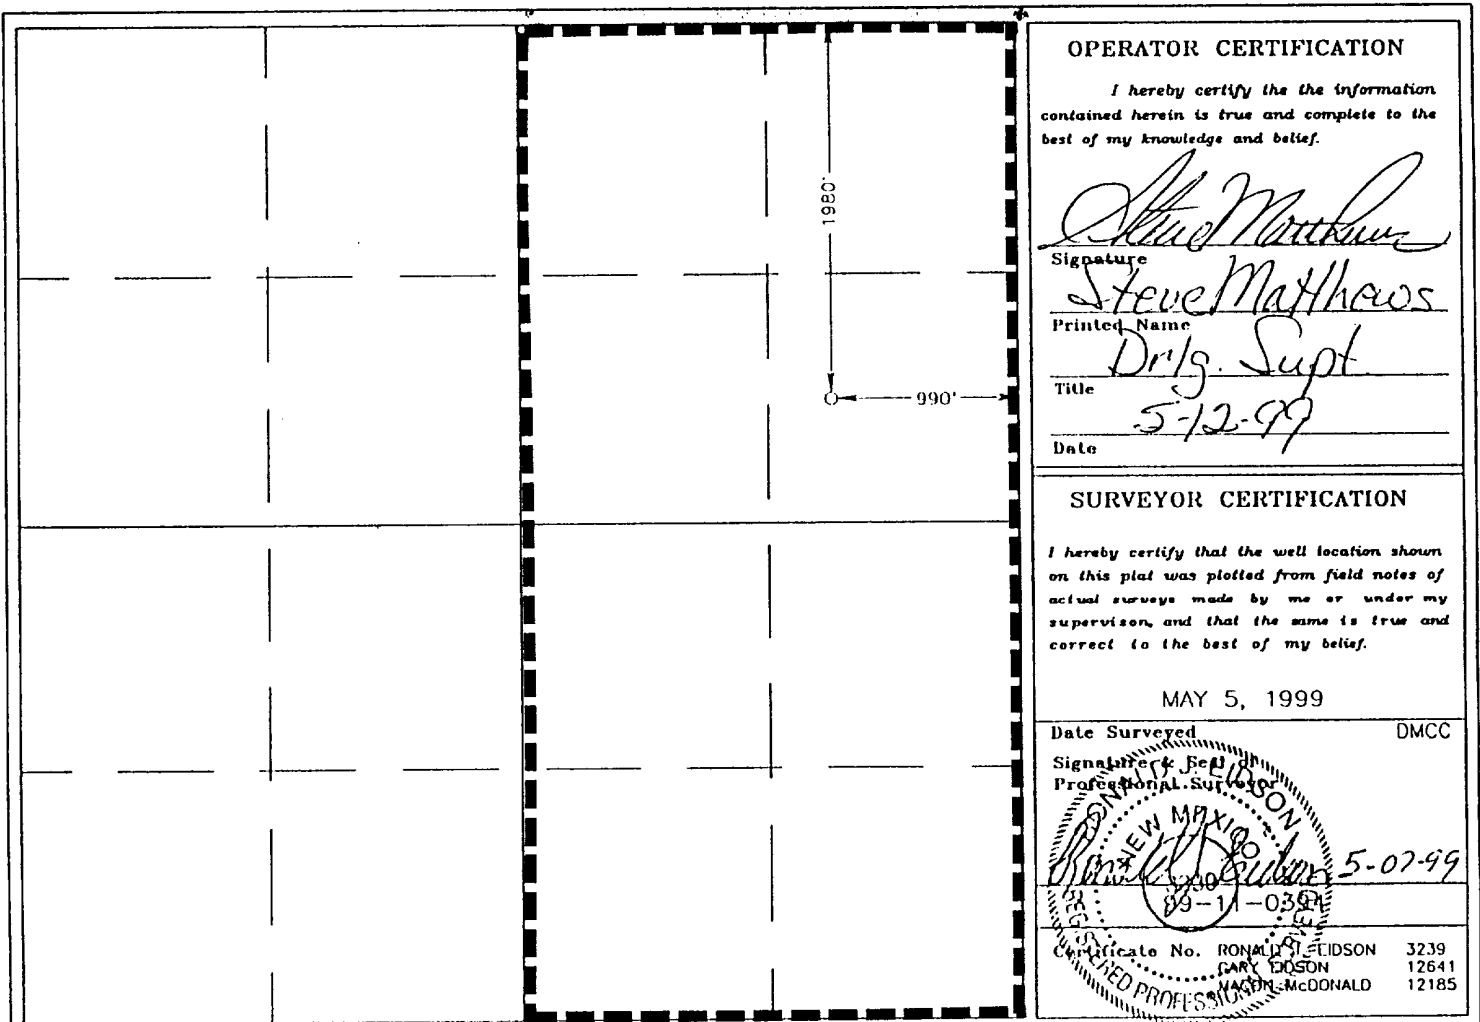 1980'
990'
OPERATOR CERTIFICATION
I hereby certify the the information
contained herein is true and complete to the
best of my knowledge and belief.
Steve Matthews
Signature
Steve Matthews
Printed Name
Drlg. Supt.
Title
5-12-99
Date
SURVEYOR CERTIFICATION
I hereby certify that the well location shown
on this plat was plotted from field notes of
actual surveys made by me or under my
supervison, and that the same is true and
correct to the best of my belief.
MAY 5, 1999
Date Surveyed DMCC
Signature & Seal of
Professional Surveyor
RONALD J. EIDSON
NEW MEXICO
3239
REGISTERED PROFESSIONAL
5-07-99
Certificate No. RONALD J. EIDSON 3239
GARY EIDSON 12641
MACON McDONALD 12185